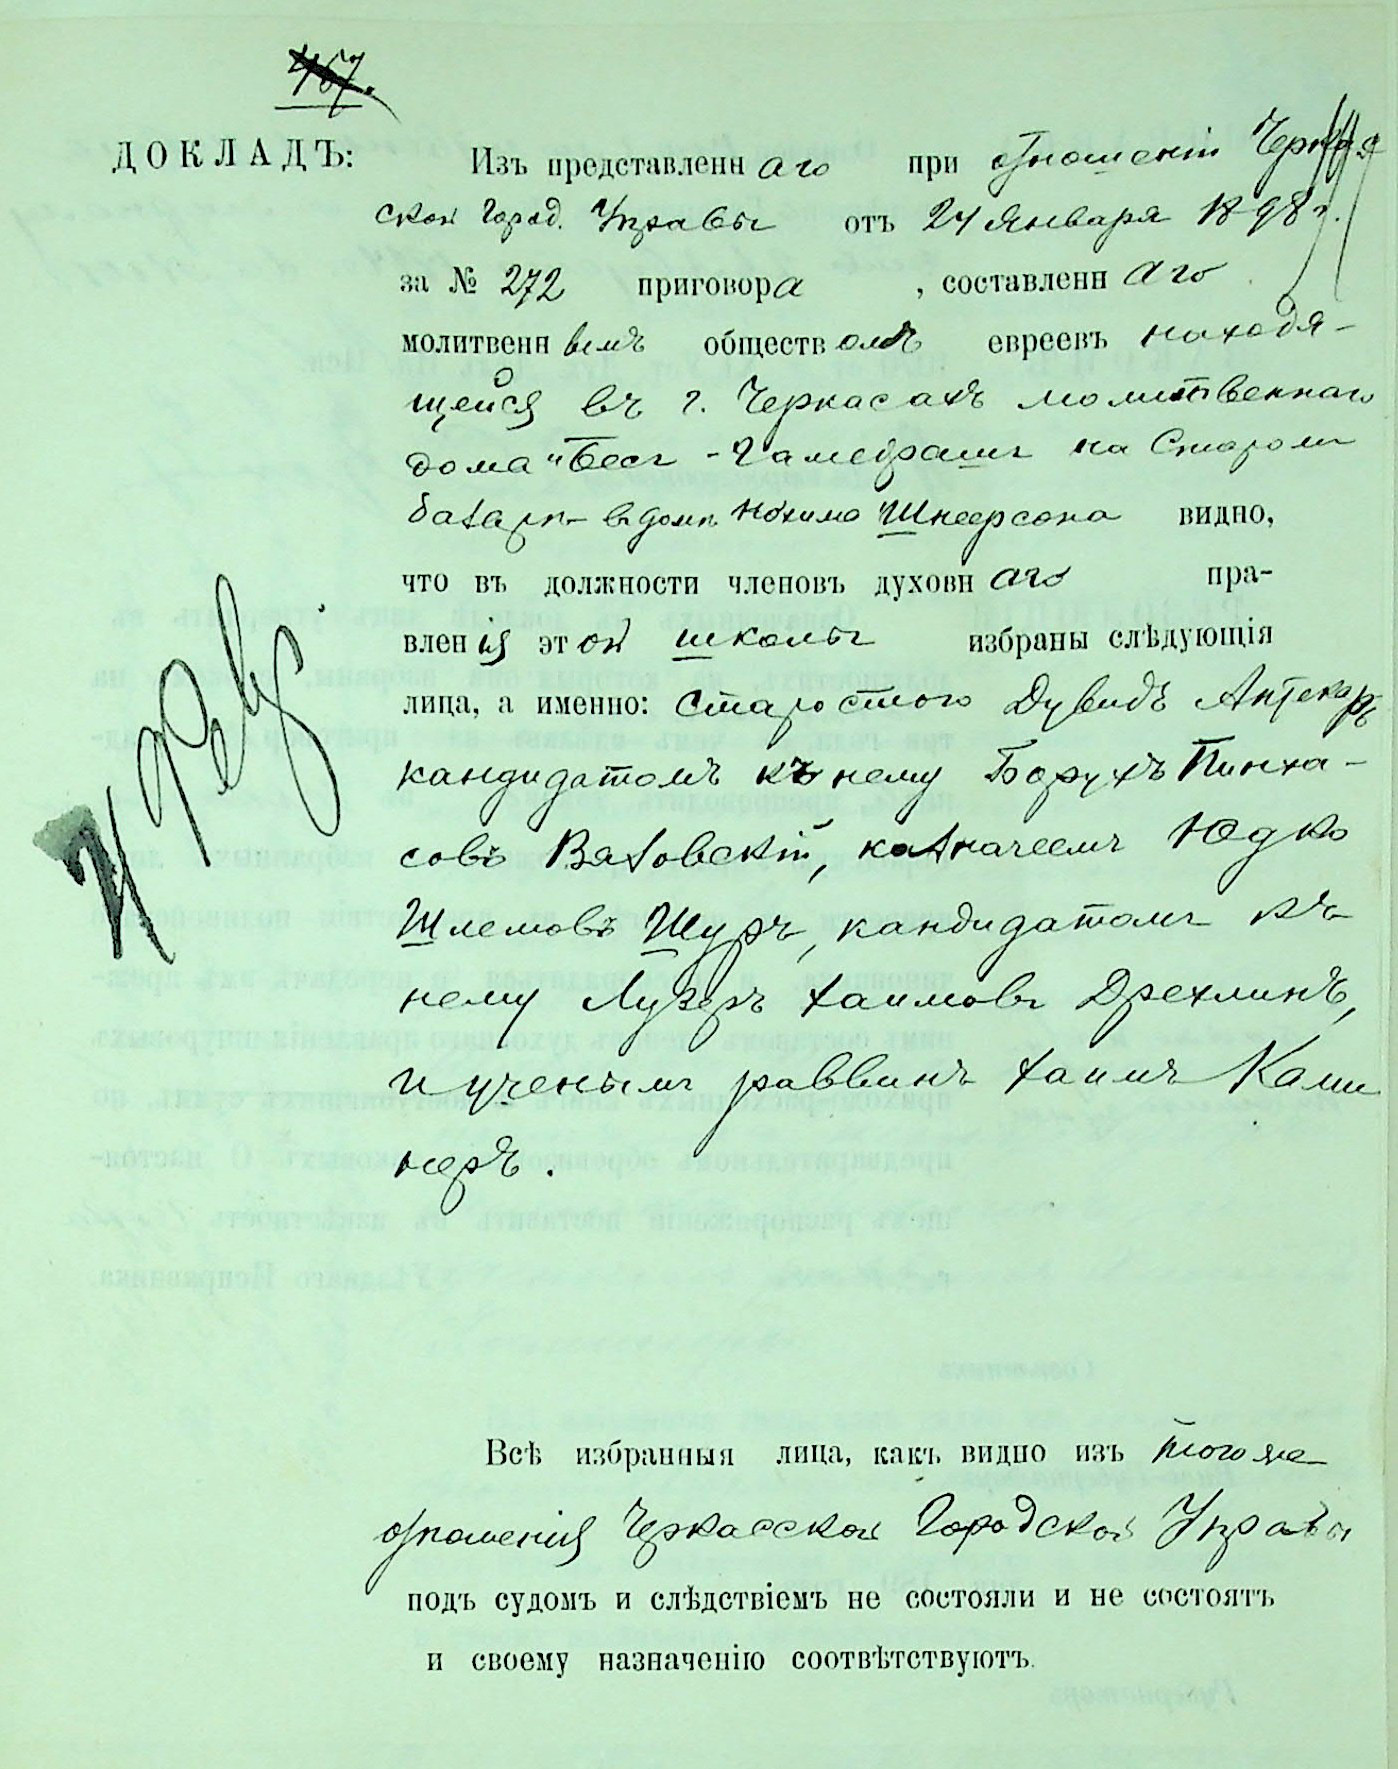 457.
ДОКЛАДЪ:
Изъ представленнаго при отношеніи Черкас
ской Город. Управы отъ 24 Января 1898 г.
за № 272 приговора, составленнаго
молитвеннымъ обществомъ евреевъ находя-
щейся въ г. Черкасахъ молитвеннаго
дома "Бесъ-Гамедрашъ на Старомъ
базарѣ въ домѣ Нохима Шнеерсона видно,
что въ должности членовъ духовнаго пра-
вленія этой школы избраны слѣдующія
лица, а именно: старостою Дувидъ Аптекарь
кандидатомъ къ нему Борухъ Пинха-
совъ Вязовскій, казначеемъ Юдко
Шлемовъ Шуръ, кандидатомъ къ
нему Лузеръ Хаимовъ Дрехлинъ,
и ученымъ раввинъ Хаимъ Ками
неръ.
Всѣ избранныя лица, какъ видно изъ того же
отношенія Черкасской Городской Управы
подъ судомъ и слѣдствіемъ не состояли и не состоятъ
и своему назначенію соотвѣтствуютъ.